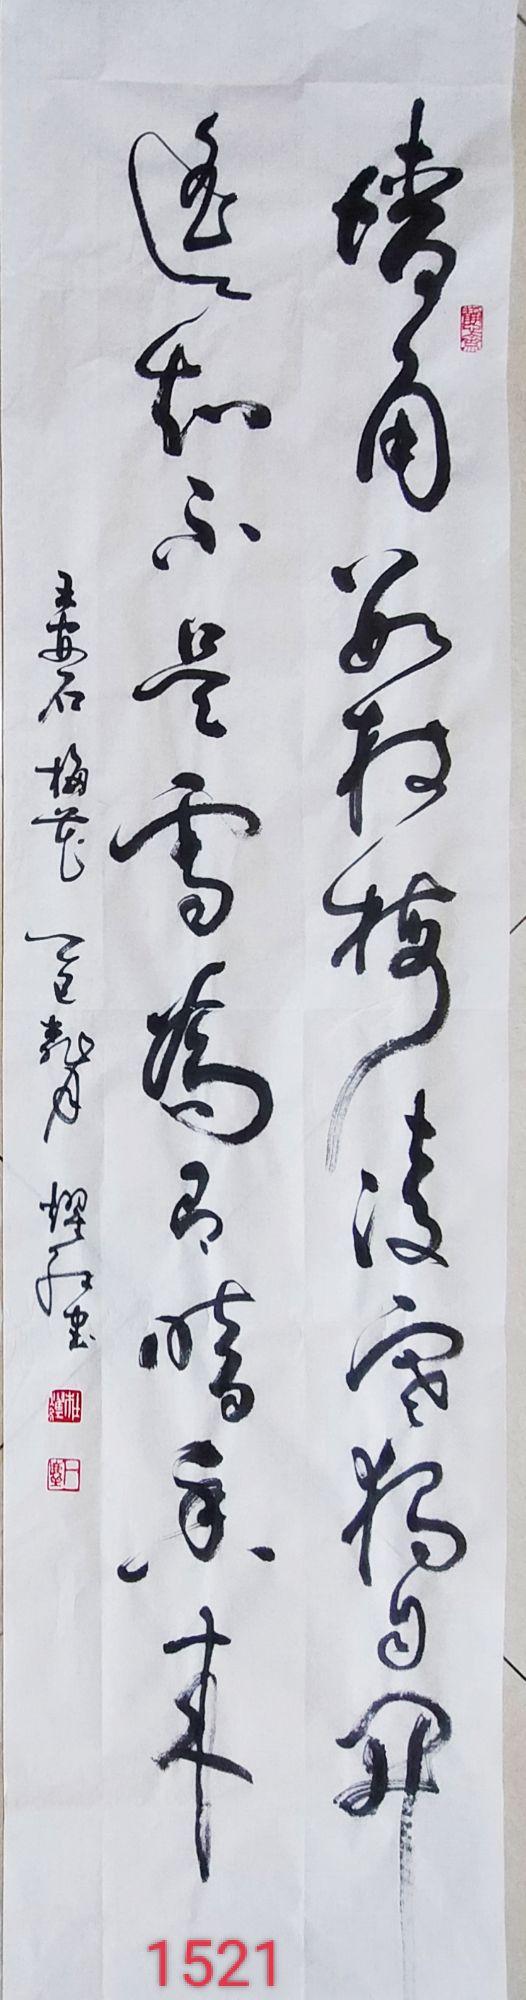 墙角数枝梅凌寒独自开
遥知不是雪为有暗香来
王安石 梅花 耀 书
1521